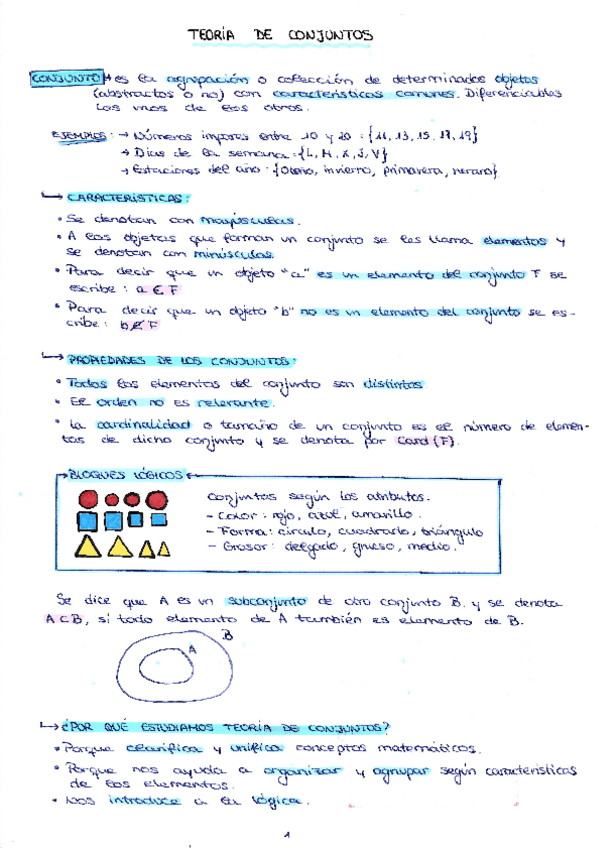 TEORÍA DE CONJUNTOS
CONJUNTO → es la agrupación o colección de determinados objetos
(abstractos o no) con características comunes. Diferenciables
los unos de los otros.
EJEMPLOS: → Números impares entre 10 y 20 : {11, 13, 15, 17, 19}
→ Días de la semana : {L, M, X, J, V}
→ Estaciones del año : {Otoño, invierno, primavera, verano}
↳ CARACTERÍSTICAS:
• Se denotan con mayúsculas.
• A los objetos que forman un conjunto se les llama elementos y
se denotan con minúsculas.
• Para decir que un objeto "a" es un elemento del conjunto F se
escribe : a ∈ F
• Para decir que un objeto "b" no es un elemento del conjunto se es-
cribe : b ∉ F
↳ PROPIEDADES DE LOS CONJUNTOS:
• Todos los elementos del conjunto son distintos
• El orden no es relevante.
• La cardinalidad o tamaño de un conjunto es el número de elemen-
tos de dicho conjunto y se denota por Card (F).
BLOQUES LÓGICOS
Conjuntos según los atributos.
- Color : rojo, azul, amarillo.
- Forma : círculo, cuadrado, triángulo
- Grosor : delgado, grueso, medio.
Se dice que A es un subconjunto de otro conjunto B. y se denota
A ⊂ B, si todo elemento de A también es elemento de B.
B
A
↳ ¿POR QUÉ ESTUDIAMOS TEORÍA DE CONJUNTOS?
• Porque clarifica y unifica conceptos matemáticos.
• Porque nos ayuda a organizar y agrupar según características
de los elementos.
• Nos introduce a la lógica.
1